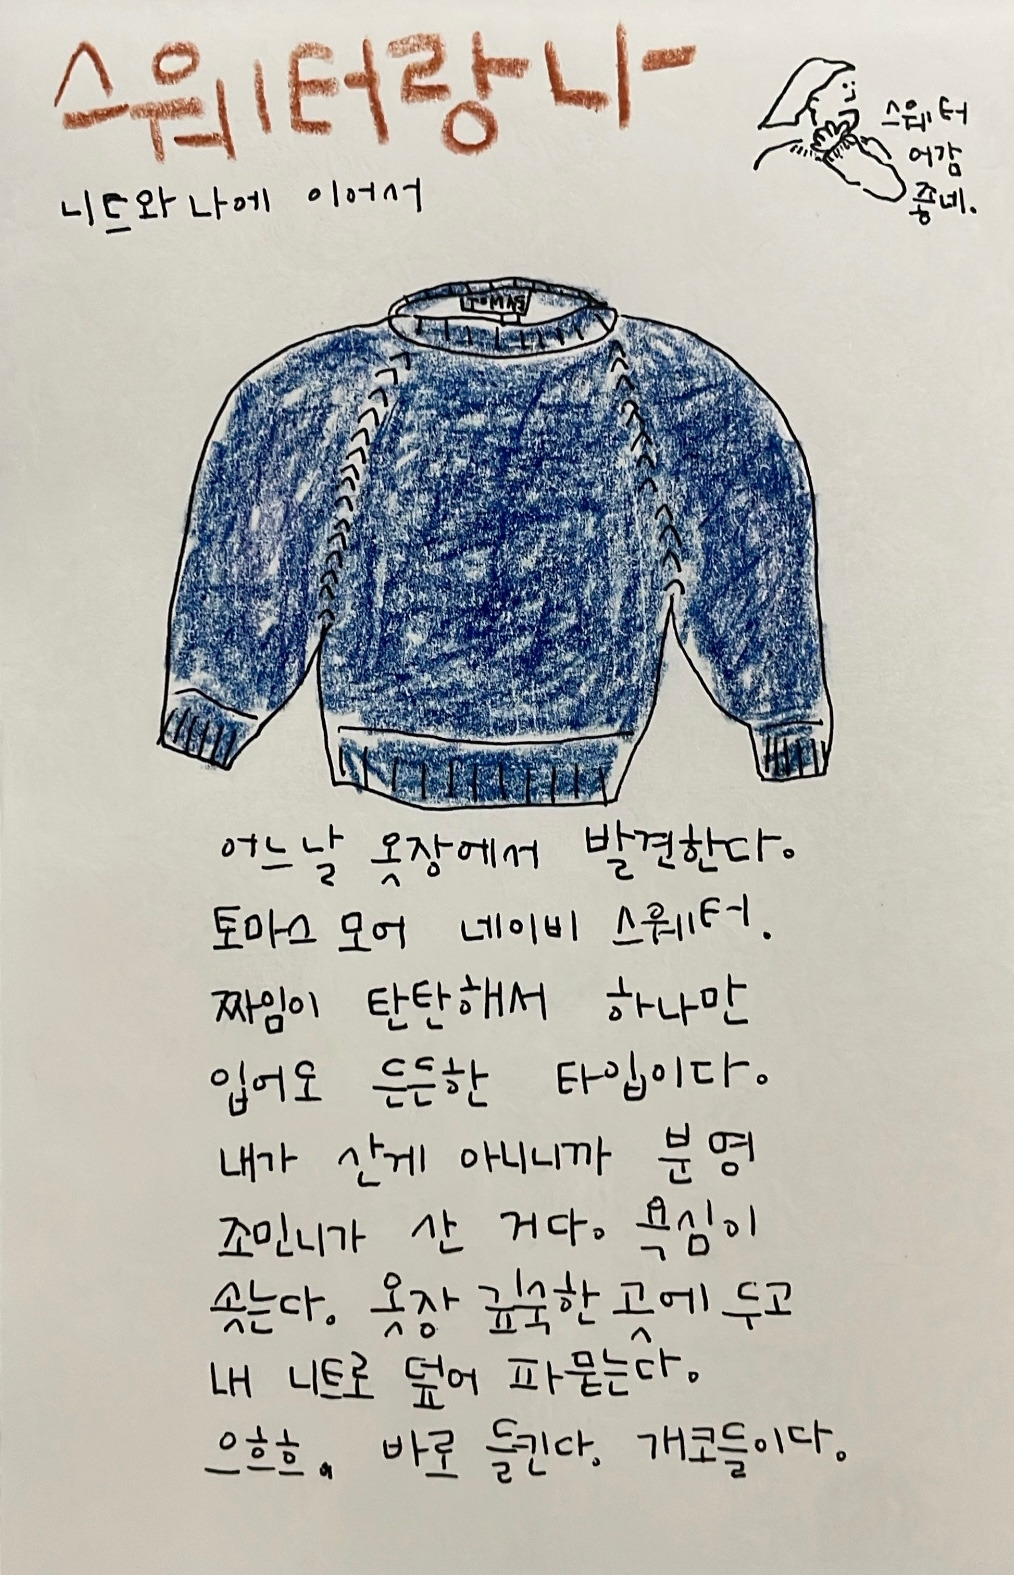 스웨터랑 나-
니트와 나에 이어서
스웨터
어감
좋네.
TOMAS
어느날 옷장에서 발견한다.
토마스 모어 네이비 스웨터.
짜임이 탄탄해서 하나만
입어도 든든한 타입이다.
내가 산게 아니니까 분명
조민니가 산 거다. 욕심이
솟는다. 옷장 깊숙한 곳에 두고
내 니트로 덮어 파묻는다.
으흐흐. 바로 들킨다. 개코들이다.